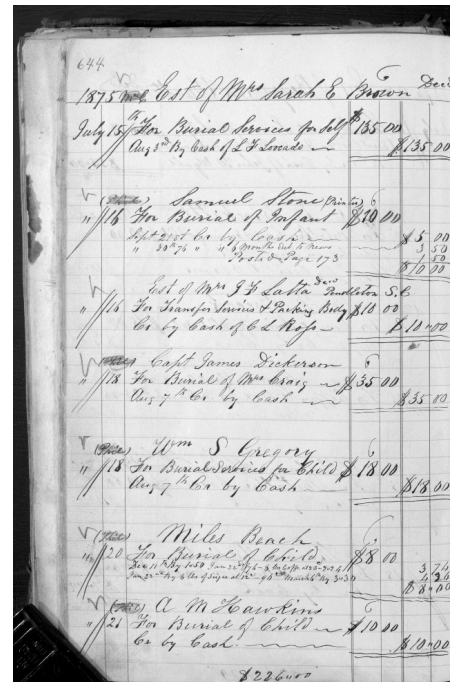 644
1875 Est of Mrs Sarah E Brown Decd
July 15th For Burial Services for Self $135 00
Aug 3rd By Cash of L F $135 00
Samuel Stone (Printer)
" 16 For Burial of Infant $10 00
Sept 21st Cr by Cash $5 00
" 30th 76 " " 6 month 3 50
Posted Page 173 1 50
$10 00
Est of Mrs J F Latta Decd Pendleton S.C.
" 16 For Transfer Services & Packing Body $10 00
Cr by Cash of C L Ross $10 00
Capt James Dickerson
" 18 For Burial of Mrs Craig $35 00
Aug 7th Cr by Cash $35 00
Wm S Gregory
" 18 For Burial Services for Child $18 00
Aug 7th Cr by Cash $18 00
Miles Beach
" 20 For Burial of Child $8 00
Dec 11th By 1.50 Jan 22nd 76
3 74
4 26
Jan 22nd By 8 lbs of Sugar at 12
$8 00
A M Hawkins
" 21 For Burial of Child $10 00
Cr by Cash $10 00
$226.00